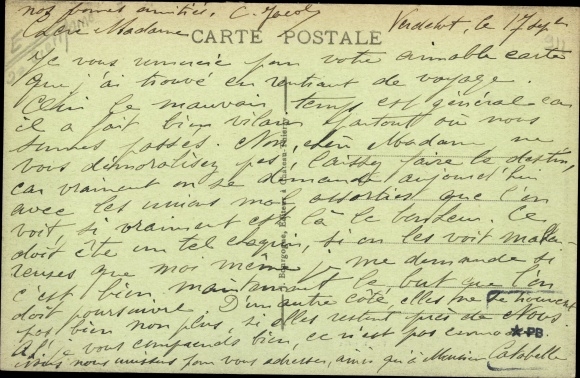 nos bonnes amitiés, C. Jacob
Verdelot, le 17 sept
Chère Madame
CARTE POSTALE
Je vous remercie pour votre aimable carte
que j'ai trouvé en rentrant de voyage.
le mauvais temps est général car
il a fait bien vilain partout où nous
sommes passés. Non, chère Madame ne
vous démoralisez pas, laissez faire le destin,
car vraiment on se demande aujourd'hui
avec les unions mal assorties que l'on
voit, si vraiment est là le bonheur. Ce
doit être un tel chagrin, si on les voit malheu
reuses que moi même je me demande si
c'est bien maintenant le but que l'on
doit poursuivre. D'un autre côté, elles ne se trouvent
pas bien non plus, si elles restent près de Nous.
Ah! je vous comprends bien, ce n'est pas
nous nous unissons pour vous adresser, ainsi qu'à Monsieur Calabelle
Bourgogne, Editeur à Château-Thierry
*PB